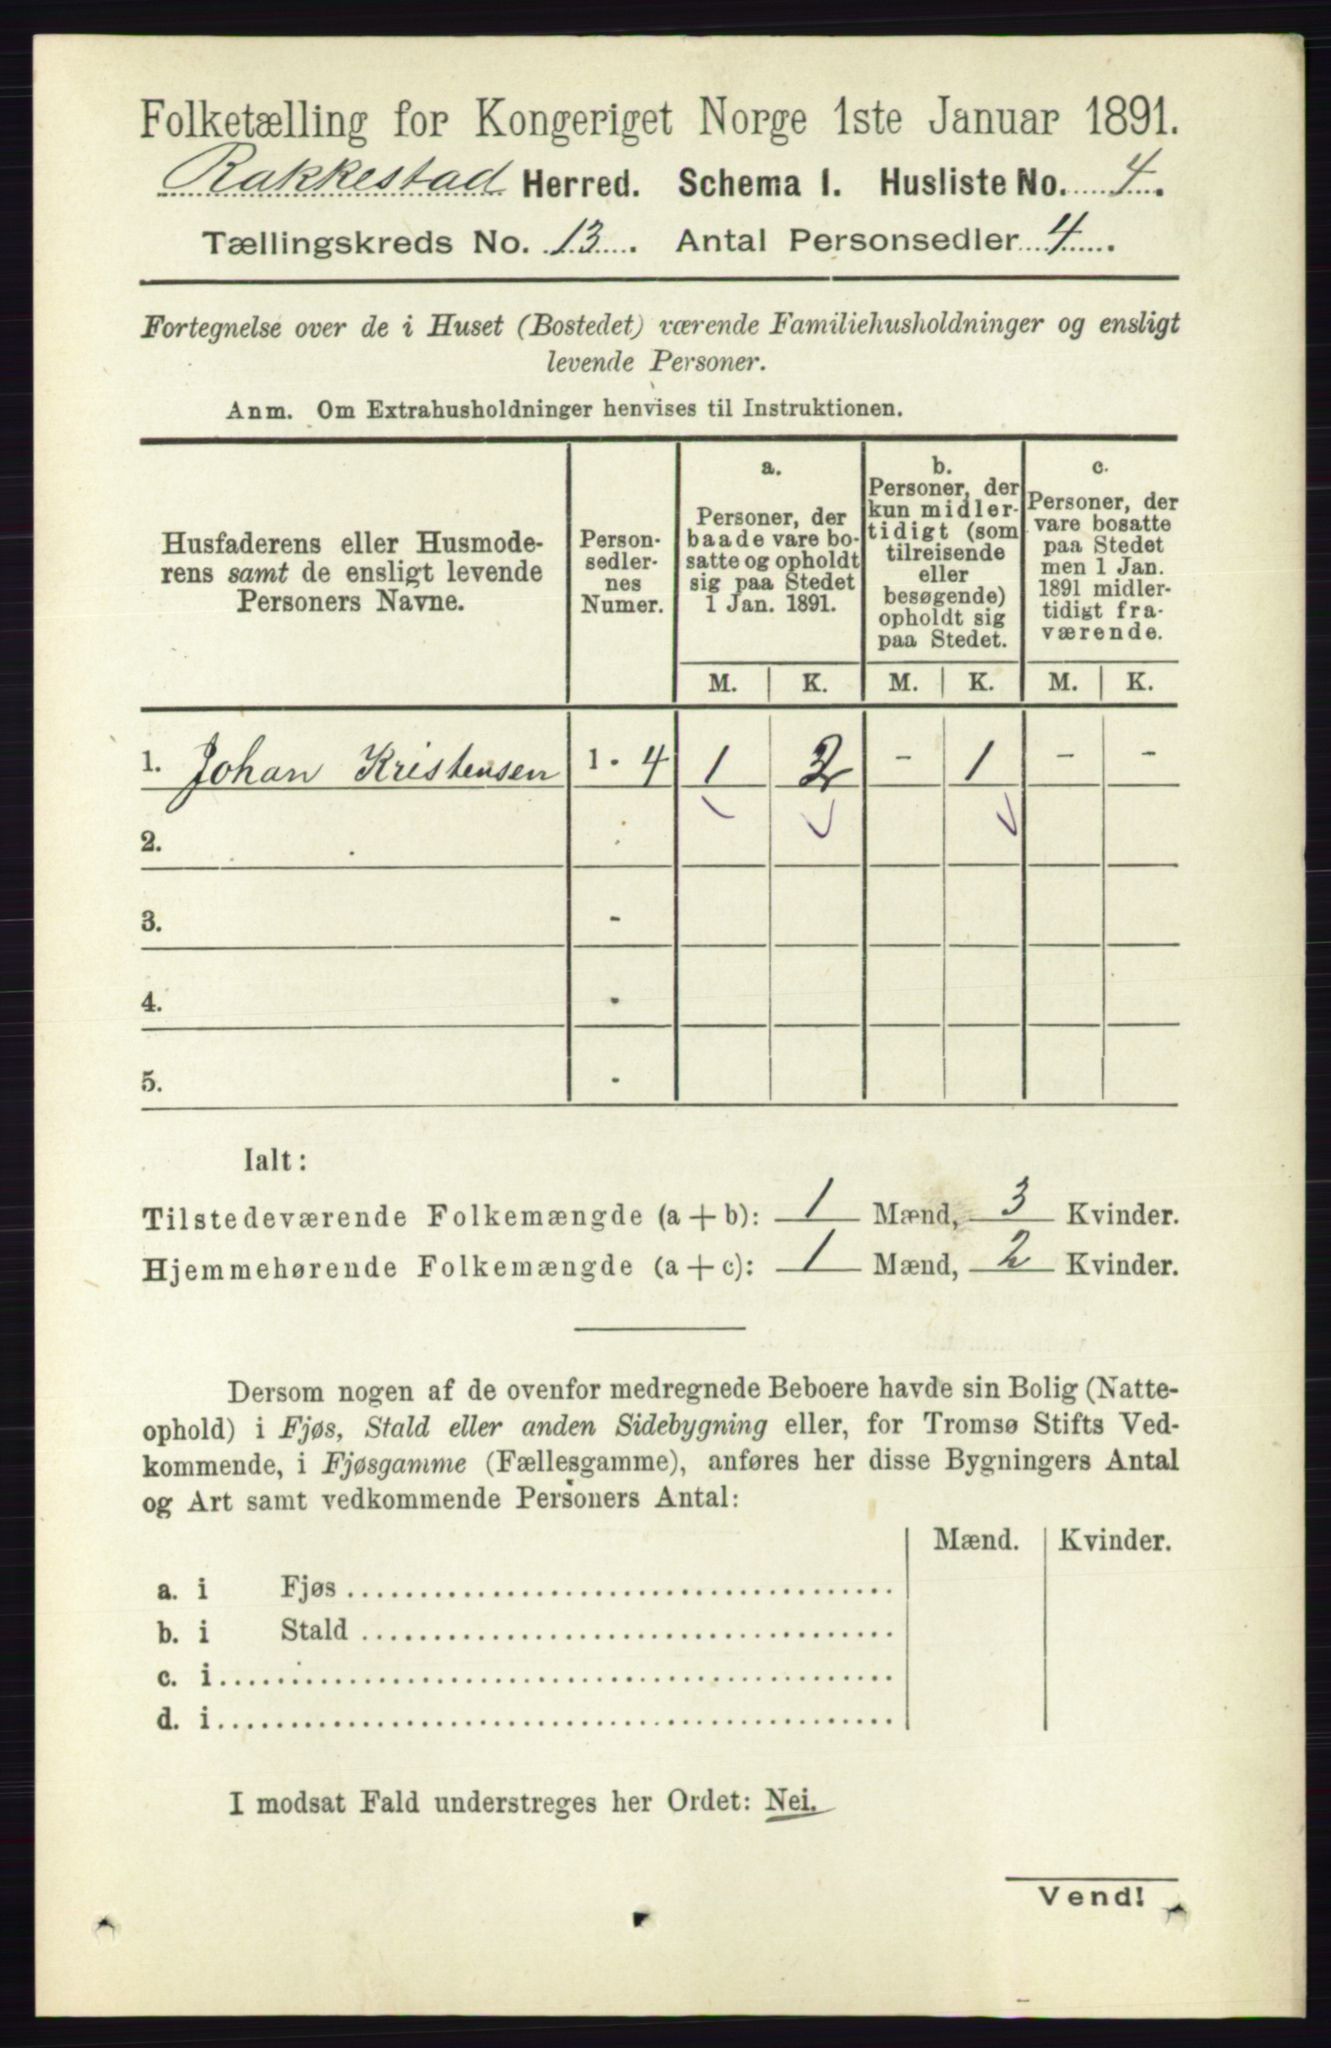 Folketælling for Kongeriget Norge 1ste Januar 1891.
Rakkestad Herred. Schema 1. Husliste No. 4.
Tællingskreds No. 13. Antal Personsedler 4.
Fortegnelse over de i Huset (Bostedet) værende Familiehusholdninger og ensligt
levende Personer.
Anm. Om Extrahusholdninger henvises til Instruktionen.
Husfaderens eller Husmode-
rens samt de ensligt levende
Personers Navne.
Person-
sedler-
nes
Numer.
a.
Personer, der
baade vare bo-
satte og opholdt
sig paa Stedet
1 Jan. 1891.
b.
Personer, der
kun midler-
tidigt (som
tilreisende
eller
besøgende)
opholdt sig
paa Stedet.
c.
Personer, der
vare bosatte
paa Stedet
men 1 Jan.
1891 midler-
tidigt fra-
værende.
M. K. M. K. M. K.
1. Johan Kristensen 1 - 4 1 2 - 1 - -
2.
3. -
4. -
5. -
Ialt:
Tilstedeværende Folkemængde (a + b): 1 Mænd, 3 Kvinder.
Hjemmehørende Folkemængde (a + c): 1 Mænd, 2 Kvinder.
Dersom nogen af de ovenfor medregnede Beboere havde sin Bolig (Natte-
ophold) i Fjøs, Stald eller anden Sidebygning eller, for Tromsø Stifts Ved-
kommende, i Fjøsgamme (Fællesgamme), anføres her disse Bygningers Antal
og Art samt vedkommende Personers Antal:
Mænd. Kvinder.
a. i Fjøs
b. i Stald
c. i
d. i
I modsat Fald understreges her Ordet: Nei.
Vend!